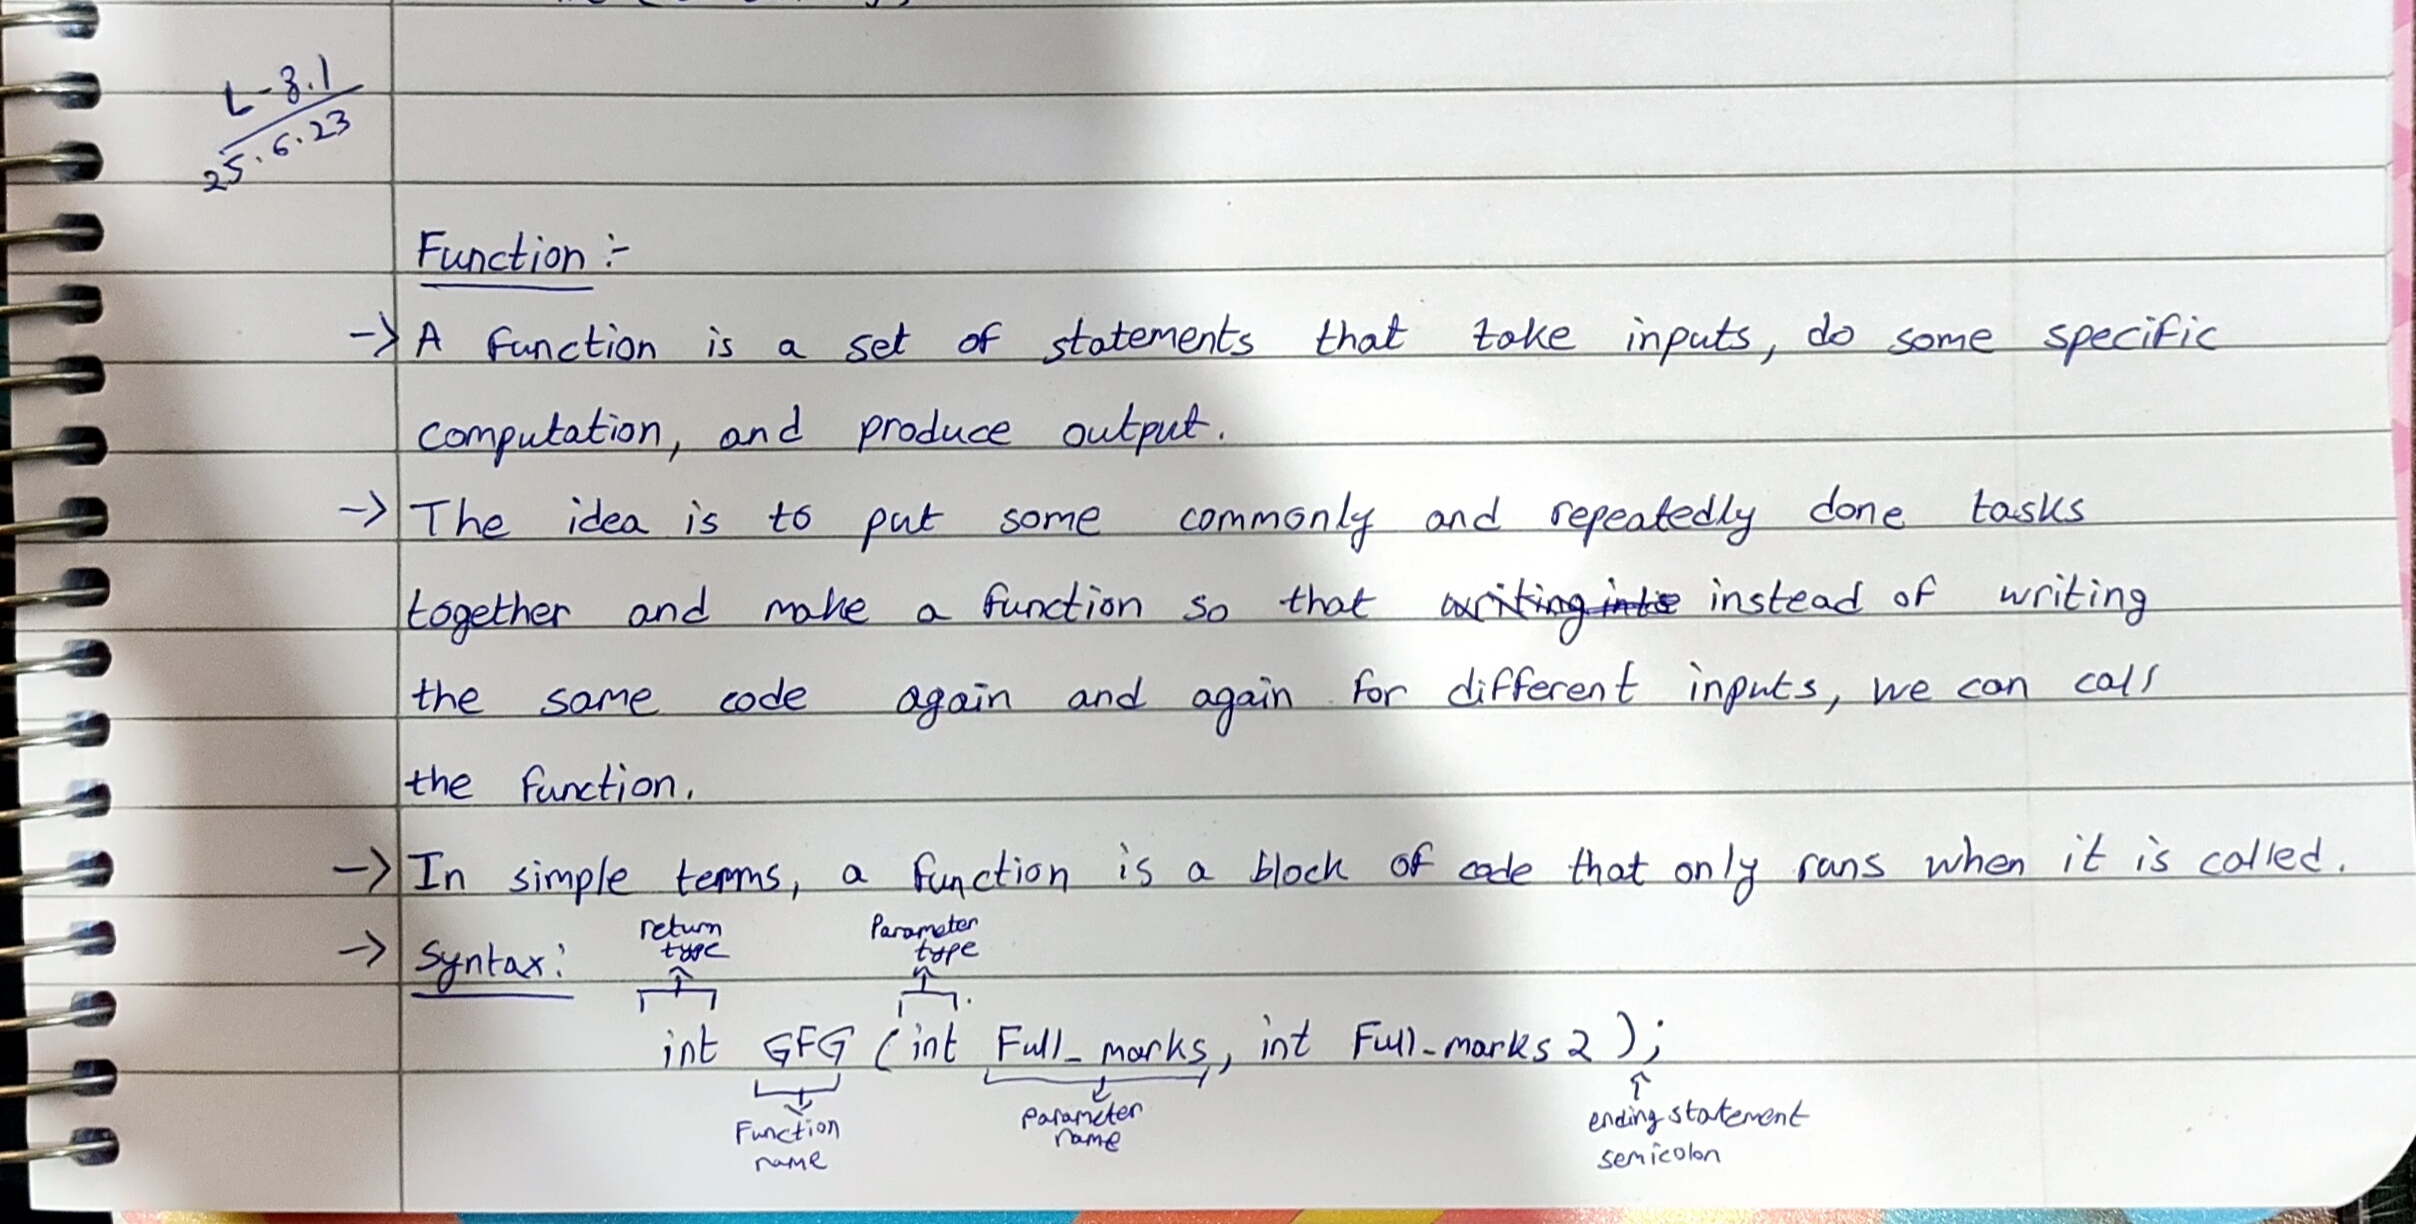 L-3.1
25.6.23
Function :-
-> A function is a set of statements that take inputs, do some specific
computation, and produce output.
-> The idea is to put some commonly and repeatedly done tasks
together and make a function so that writing into instead of writing
the same code again and again for different inputs, we can call
the function.
-> In simple terms, a function is a block of code that only runs when it is called.
return Parameter
-> Syntax: type type
int GFG (int Full_marks, int Full_marks 2 );
Function name
Parameter name
ending statement semicolon